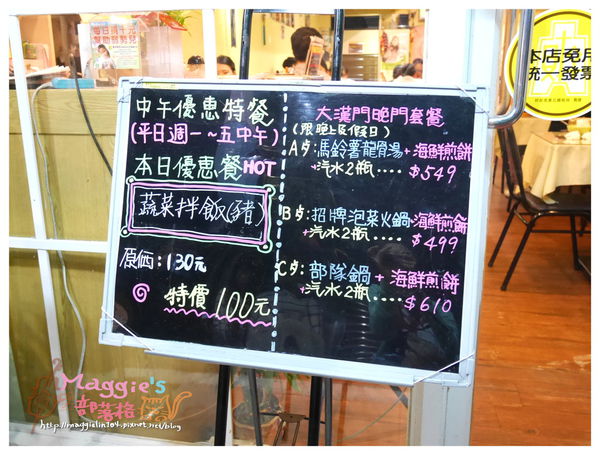 中午優惠特餐
(平日週一~五中午)
本日優惠餐HOT
蔬菜拌飯(豬)
原価:130元
特價100元
大漢門晚門套餐
(限晚上及假日)
A占:馬鈴薯龍骨湯+海鮮煎餅
+汽水2瓶....$549
B占:招牌泡菜火鍋+海鮮煎餅
+汽水2瓶....$499
C占:部隊鍋+海鮮煎餅
+汽水2瓶....$610
本店免用
統一發票
Maggie's
部落格
http://maggielin104.pixnet.net/blog